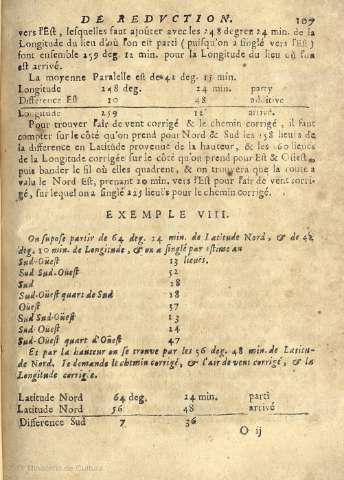 DE REDVCTION. 107
vers l'Est, lesquelles faut ajoûter avec les 248 degrez 24 min. de la
Longitude du lieu d'où l'on est parti (puisqu'on a singlé vers l'Est)
font ensemble 259 deg. 12 min. pour la Longitude du lieu où l'on
est arrivé.
La moyenne Paralelle est de 42 deg. 15 min.
Longitude 248 deg. 24 min. party
Difference Est 10 48 additive
Longitude 259 12 arrivé
Pour trouver l'air de vent corrigé & le chemin corrigé, il faut
compter sur le côté qu'on prend pour Nord & Sud les 158 lieuës de
la difference en Latitude provenuë de la hauteur, & les 160 lieuës
de la Longitude corrigée sur le côté qu'on prend pour Est & Oüest,
puis bander le fil où elles quadrent, & on trouvera que la route a
valu le Nord Est, prenant 20 min. vers l'Est pour l'air de vent corri-
gé, sur lequel on a singlé 225 lieuës pour le chemin corrigé.
EXEMPLE VIII.
On supose partir de 64 deg. 24 min. de Latitude Nord, & de 42
deg. 10 min. de Longitude, & on a singlé par estime au
Sud-Oüest 13 lieuës.
Sud Sud-Oüest 52
Sud 28
Sud-Oüest quart de Sud 18
Oüest 37
Sud Sud-Oüest 13
Sud-Oüest 24
Sud-Oüest quart d'Oüest 47
Et par la hauteur on se trouve par les 56 deg. 48 min. de Latitu-
de Nord. Je demande le chemin corrigé, & l'air de vent corrigé, & la
Longitude corrigée.
Latitude Nord 64 deg. 24 min. parti
Latitude Nord 56 48 arrivé
Difference Sud 7 36
O ij
Ministerio de Cultura